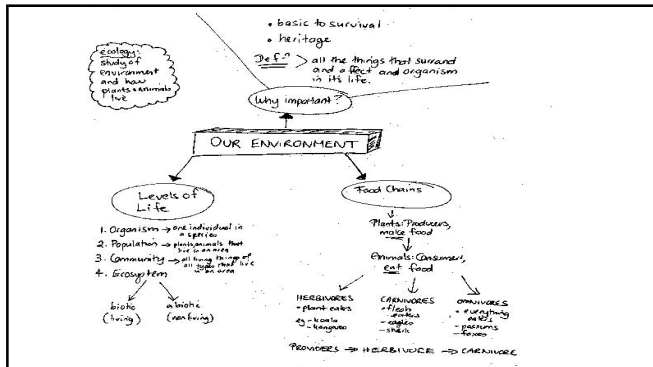 • basic to survival
• heritage
Def:> all the things that surrand
and affect and organism
in its life.
ecology:
study of
environment
and how
plants & animals
live
Why important?
OUR ENVIRONMENT
Levels of
Life
1. Organism → one individual in
a species
2. Population → plants, animals that
live in an area
3. Community → all living things of
all types that live
in an area
4. Ecosystem
biotic
(living)
abiotic
(nonliving)
Food Chains
Plants: Producers,
make food
Animals: Consumers,
eat food
HERBIVORES
• plant eaters
eg - koala
- kangaroo
CARNIVORES
• flesh
eaters
- eagles
- shark
OMNIVORES
• everything
eaters
- possums
- foxes
PROVIDERS → HERBIVORE → CARNIVORE